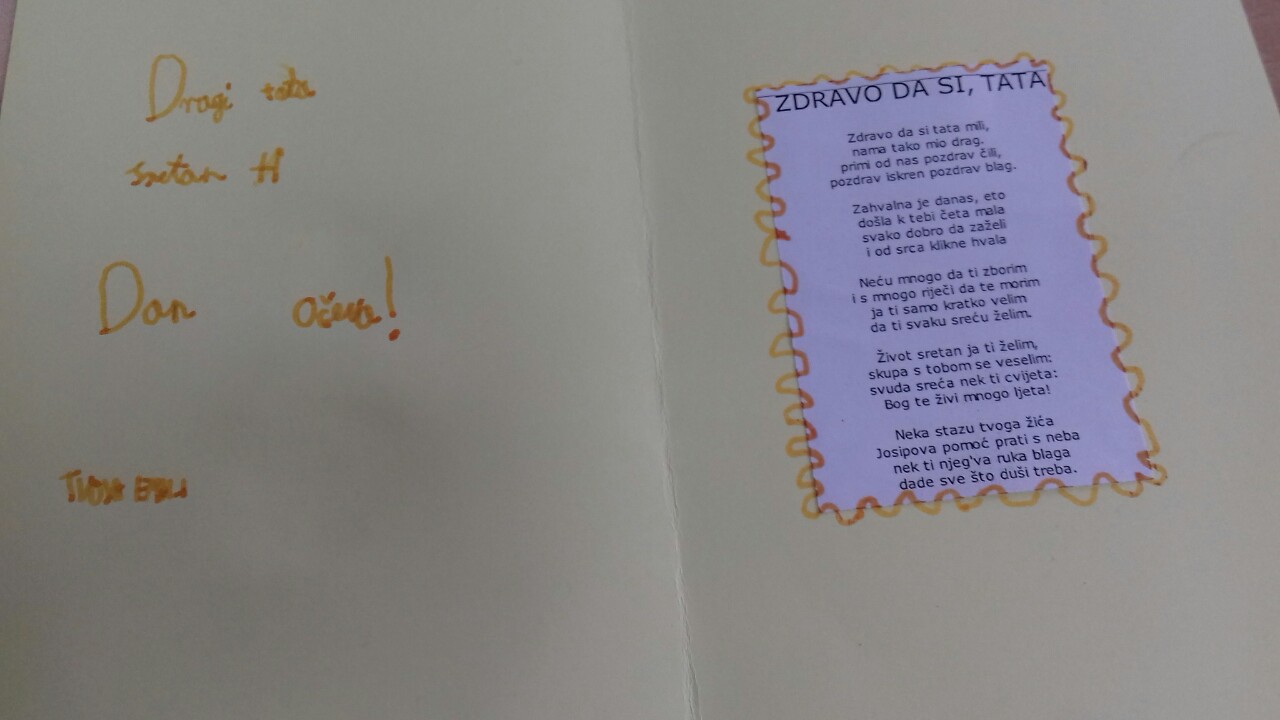 Dragi tata
sretan ti
Dan očeva!
TVOJA EMILI
ZDRAVO DA SI, TATA
Zdravo da si tata mili,
nama tako mio drag.
primi od nas pozdrav čili,
pozdrav iskren pozdrav blag.
Zahvalna je danas, eto
došla k tebi četa mala
svako dobro da zaželi
i od srca klikne hvala
Neću mnogo da ti zborim
i s mnogo riječi da te morim
ja ti samo kratko velim
da ti svaku sreću želim.
Život sretan ja ti želim,
skupa s tobom se veselim:
svuda sreća nek ti cvijeta:
Bog te živi mnogo ljeta!
Neka stazu tvoga žića
Josipova pomoć prati s neba
nek ti njeg'va ruka blaga
dade sve što duši treba.